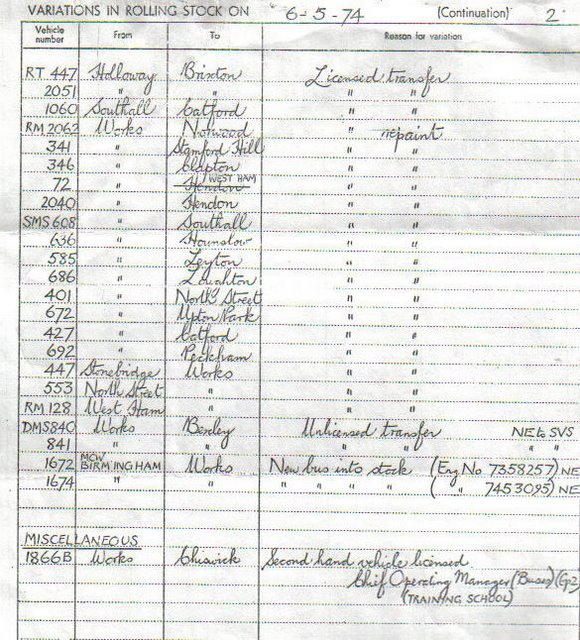 VARIATIONS IN ROLLING STOCK ON 6-5-74 (Continuation) 2
Vehicle number From To Reason for variation
RT 447 Holloway Brixton Licensed transfer
2051 " " " "
1060 Southall Catford " "
RM 2062 Works Norwood " repaint
341 " Stamford Hill " "
346 " Clapton " "
72 " Hendon WEST HAM " "
2040 " Hendon " "
SMS 608 " Southall " "
636 " Hounslow " "
585 " Leyton " "
686 " Loughton " "
401 " North Street " "
672 " Upton Park " "
427 " Catford " "
692 " Peckham " "
447 Stonebridge Works " "
553 North Street " " "
RM 128 West Ham " " "
DMS 840 Works Bexley Unlicensed transfer NE to SVS
841 " " " " " "
1672 MCW BIRMINGHAM Works New bus into stock (Eng No 7358257) NE
1674 " " " " " " ( " 7453095) NE
MISCELLANEOUS
1866B Works Chiswick Second hand vehicle licensed
Chief Operating Manager (Buses) (Gp2)
(TRAINING SCHOOL)